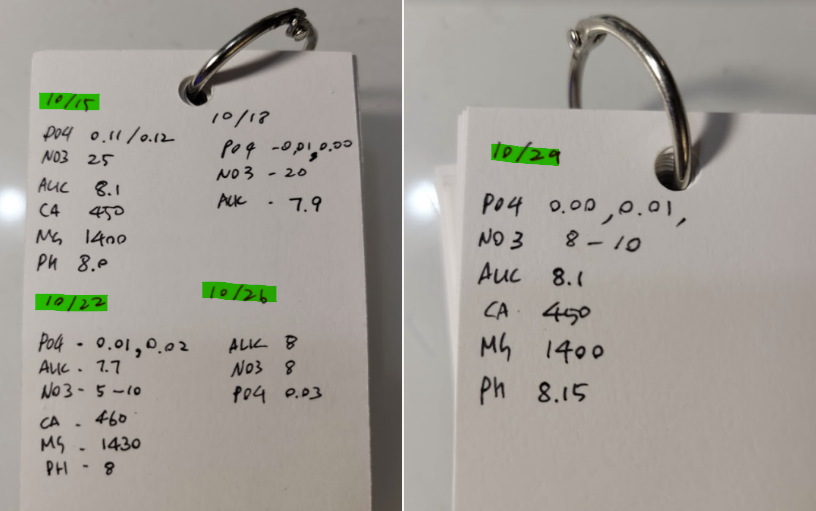 10/15
PO4 0.11/0.12
NO3 25
ALK 8.1
CA 450
MG 1400
PH 8.0
10/18
PO4 -0.01, 0.00
NO3 - 20
ALK - 7.9
10/22
PO4 - 0.01, 0.02
ALK - 7.7
NO3 - 5-10
CA - 460
MG - 1430
PH - 8
10/26
ALK 8
NO3 8
PO4 0.03
10/29
PO4 0.00, 0.01,
NO3 8-10
ALK 8.1
CA 450
MG 1400
PH 8.15